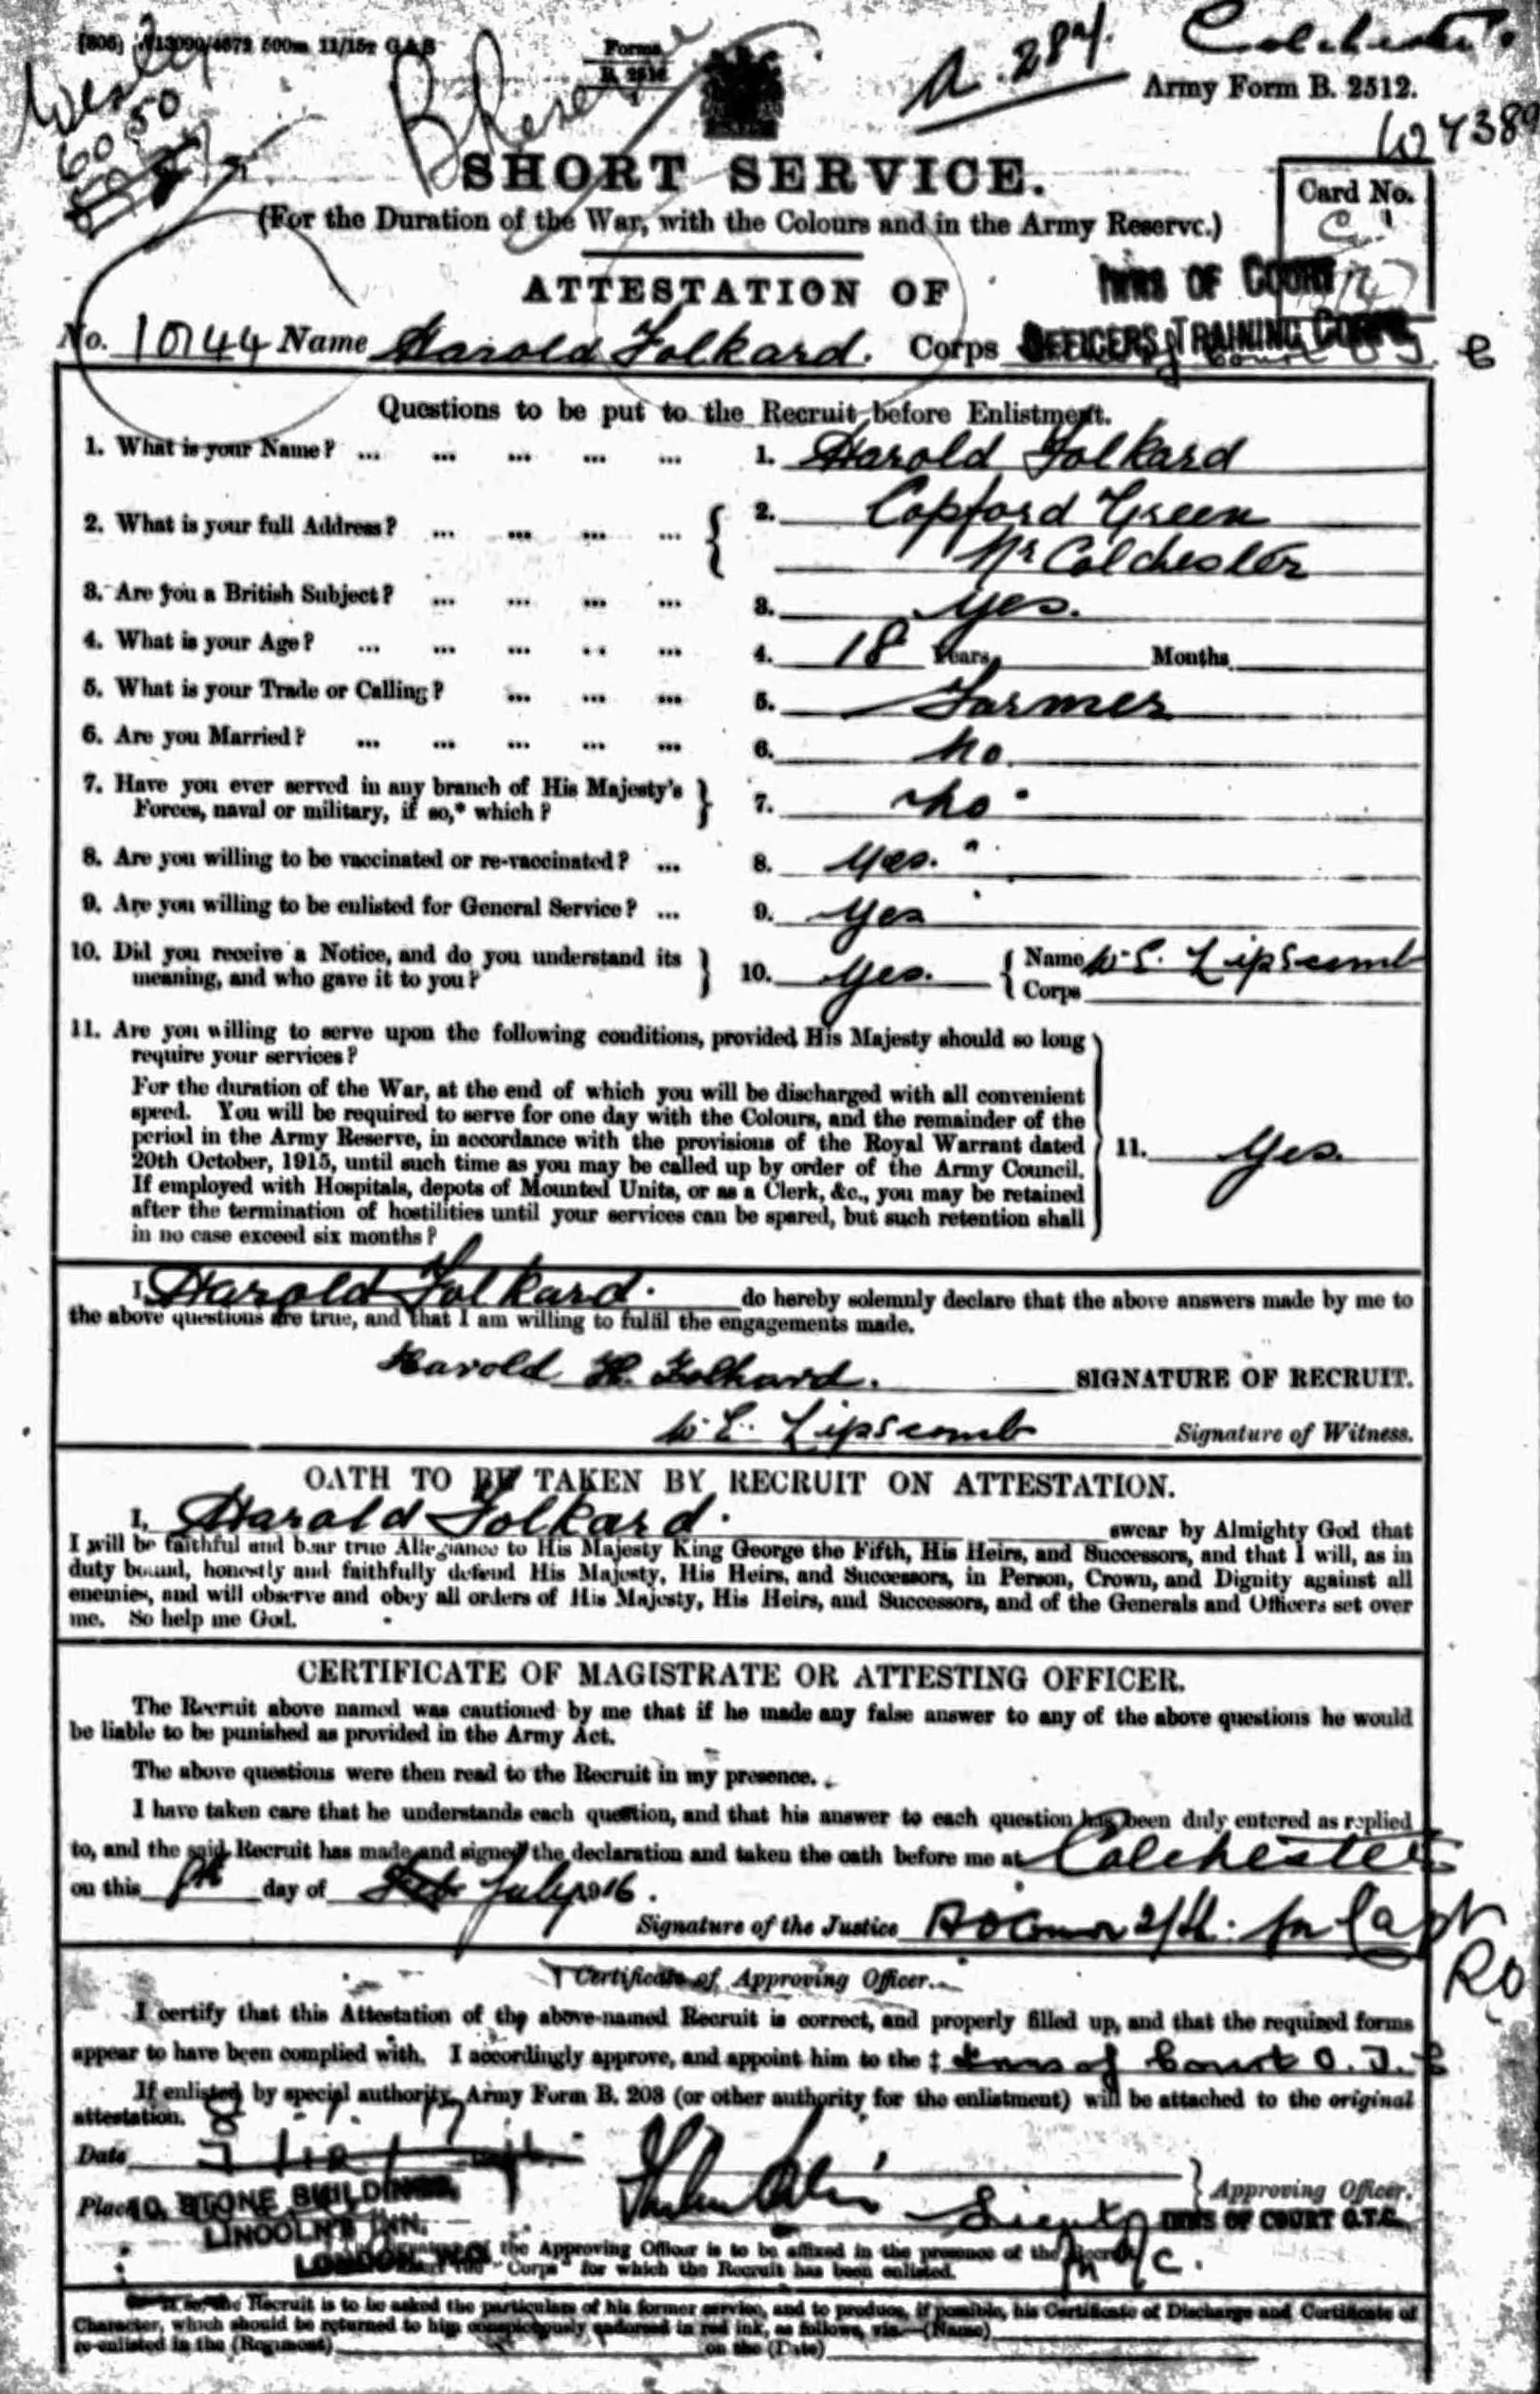 (806) W13090/4672 500m 11/15z G&S
Forms
B. 2512
1
B Reserve
A. 284.
Colchester.
Army Form B. 2512.
Wesley
60.50
SHORT SERVICE.
Card No.
(For the Duration of the War, with the Colours and in the Army Reserve.)
ATTESTATION OF
INNS OF COURT
No. 10144 Name Harold Folkard. Corps OFFICERS TRAINING CORPS
Questions to be put to the Recruit before Enlistment.
1. What is your Name? ... ... ... ... ... 1. Harold Folkard
2. What is your full Address? ... ... ... ... { 2. Copford Green
Nr Colchester
3. Are you a British Subject? ... ... ... ... 3. Yes.
4. What is your Age? ... ... ... ... ... 4. 18 Years, Months
5. What is your Trade or Calling? ... ... ... 5. Farmer
6. Are you Married? ... ... ... ... ... 6. No.
7. Have you ever served in any branch of His Majesty's } 7. No
Forces, naval or military, if so,* which?
8. Are you willing to be vaccinated or re-vaccinated? ... 8. Yes.
9. Are you willing to be enlisted for General Service? ... 9. Yes
10. Did you receive a Notice, and do you understand its } 10. Yes. { Name W.E. Lipscomb
meaning, and who gave it to you? Corps
11. Are you willing to serve upon the following conditions, provided His Majesty should so long
require your services?
For the duration of the War, at the end of which you will be discharged with all convenient
speed. You will be required to serve for one day with the Colours, and the remainder of the
period in the Army Reserve, in accordance with the provisions of the Royal Warrant dated } 11. Yes.
20th October, 1915, until such time as you may be called up by order of the Army Council.
If employed with Hospitals, depots of Mounted Units, or as a Clerk, &c., you may be retained
after the termination of hostilities until your services can be spared, but such retention shall
in no case exceed six months?
I, Harold Folkard. do hereby solemnly declare that the above answers made by me to
the above questions are true, and that I am willing to fulfil the engagements made.
Harold H. Folkard. SIGNATURE OF RECRUIT.
W.E. Lipscomb Signature of Witness.
OATH TO BE TAKEN BY RECRUIT ON ATTESTATION.
I, Harold Folkard. swear by Almighty God that
I will be faithful and bear true Allegiance to His Majesty King George the Fifth, His Heirs, and Successors, and that I will, as in
duty bound, honestly and faithfully defend His Majesty, His Heirs, and Successors, in Person, Crown, and Dignity against all
enemies, and will observe and obey all orders of His Majesty, His Heirs, and Successors, and of the Generals and Officers set over
me. So help me God.
CERTIFICATE OF MAGISTRATE OR ATTESTING OFFICER.
The Recruit above named was cautioned by me that if he made any false answer to any of the above questions he would
be liable to be punished as provided in the Army Act.
The above questions were then read to the Recruit in my presence.
I have taken care that he understands each question, and that his answer to each question has been duly entered as replied
to, and the said Recruit has made and signed the declaration and taken the oath before me at Colchester
on this day of July 1916.
Signature of the Justice 2/Lt. for Capt
RO
† Certificate of Approving Officer.
I certify that this Attestation of the above-named Recruit is correct, and properly filled up, and that the required forms
appear to have been complied with. I accordingly approve, and appoint him to the ‡ Inns of Court O.T.C
If enlisted by special authority, Army Form B. 203 (or other authority for the enlistment) will be attached to the original
attestation.
Date
Place 10, STONE BUILDINGS, } Approving Officer.
LINCOLN'S INN, Lieut INNS OF COURT O.T.C.
LONDON, W.C.
the Approving Officer is to be affixed in the presence of the Recruit
"Corps" for which the Recruit has been enlisted.
the Recruit is to be asked the particulars of his former service, and to produce, if possible, his Certificate of Discharge and Certificate of
Character, which should be returned to him conspicuously endorsed in red ink, as follows, viz.—(Name)
re-enlisted in the (Regiment) on the (Date)